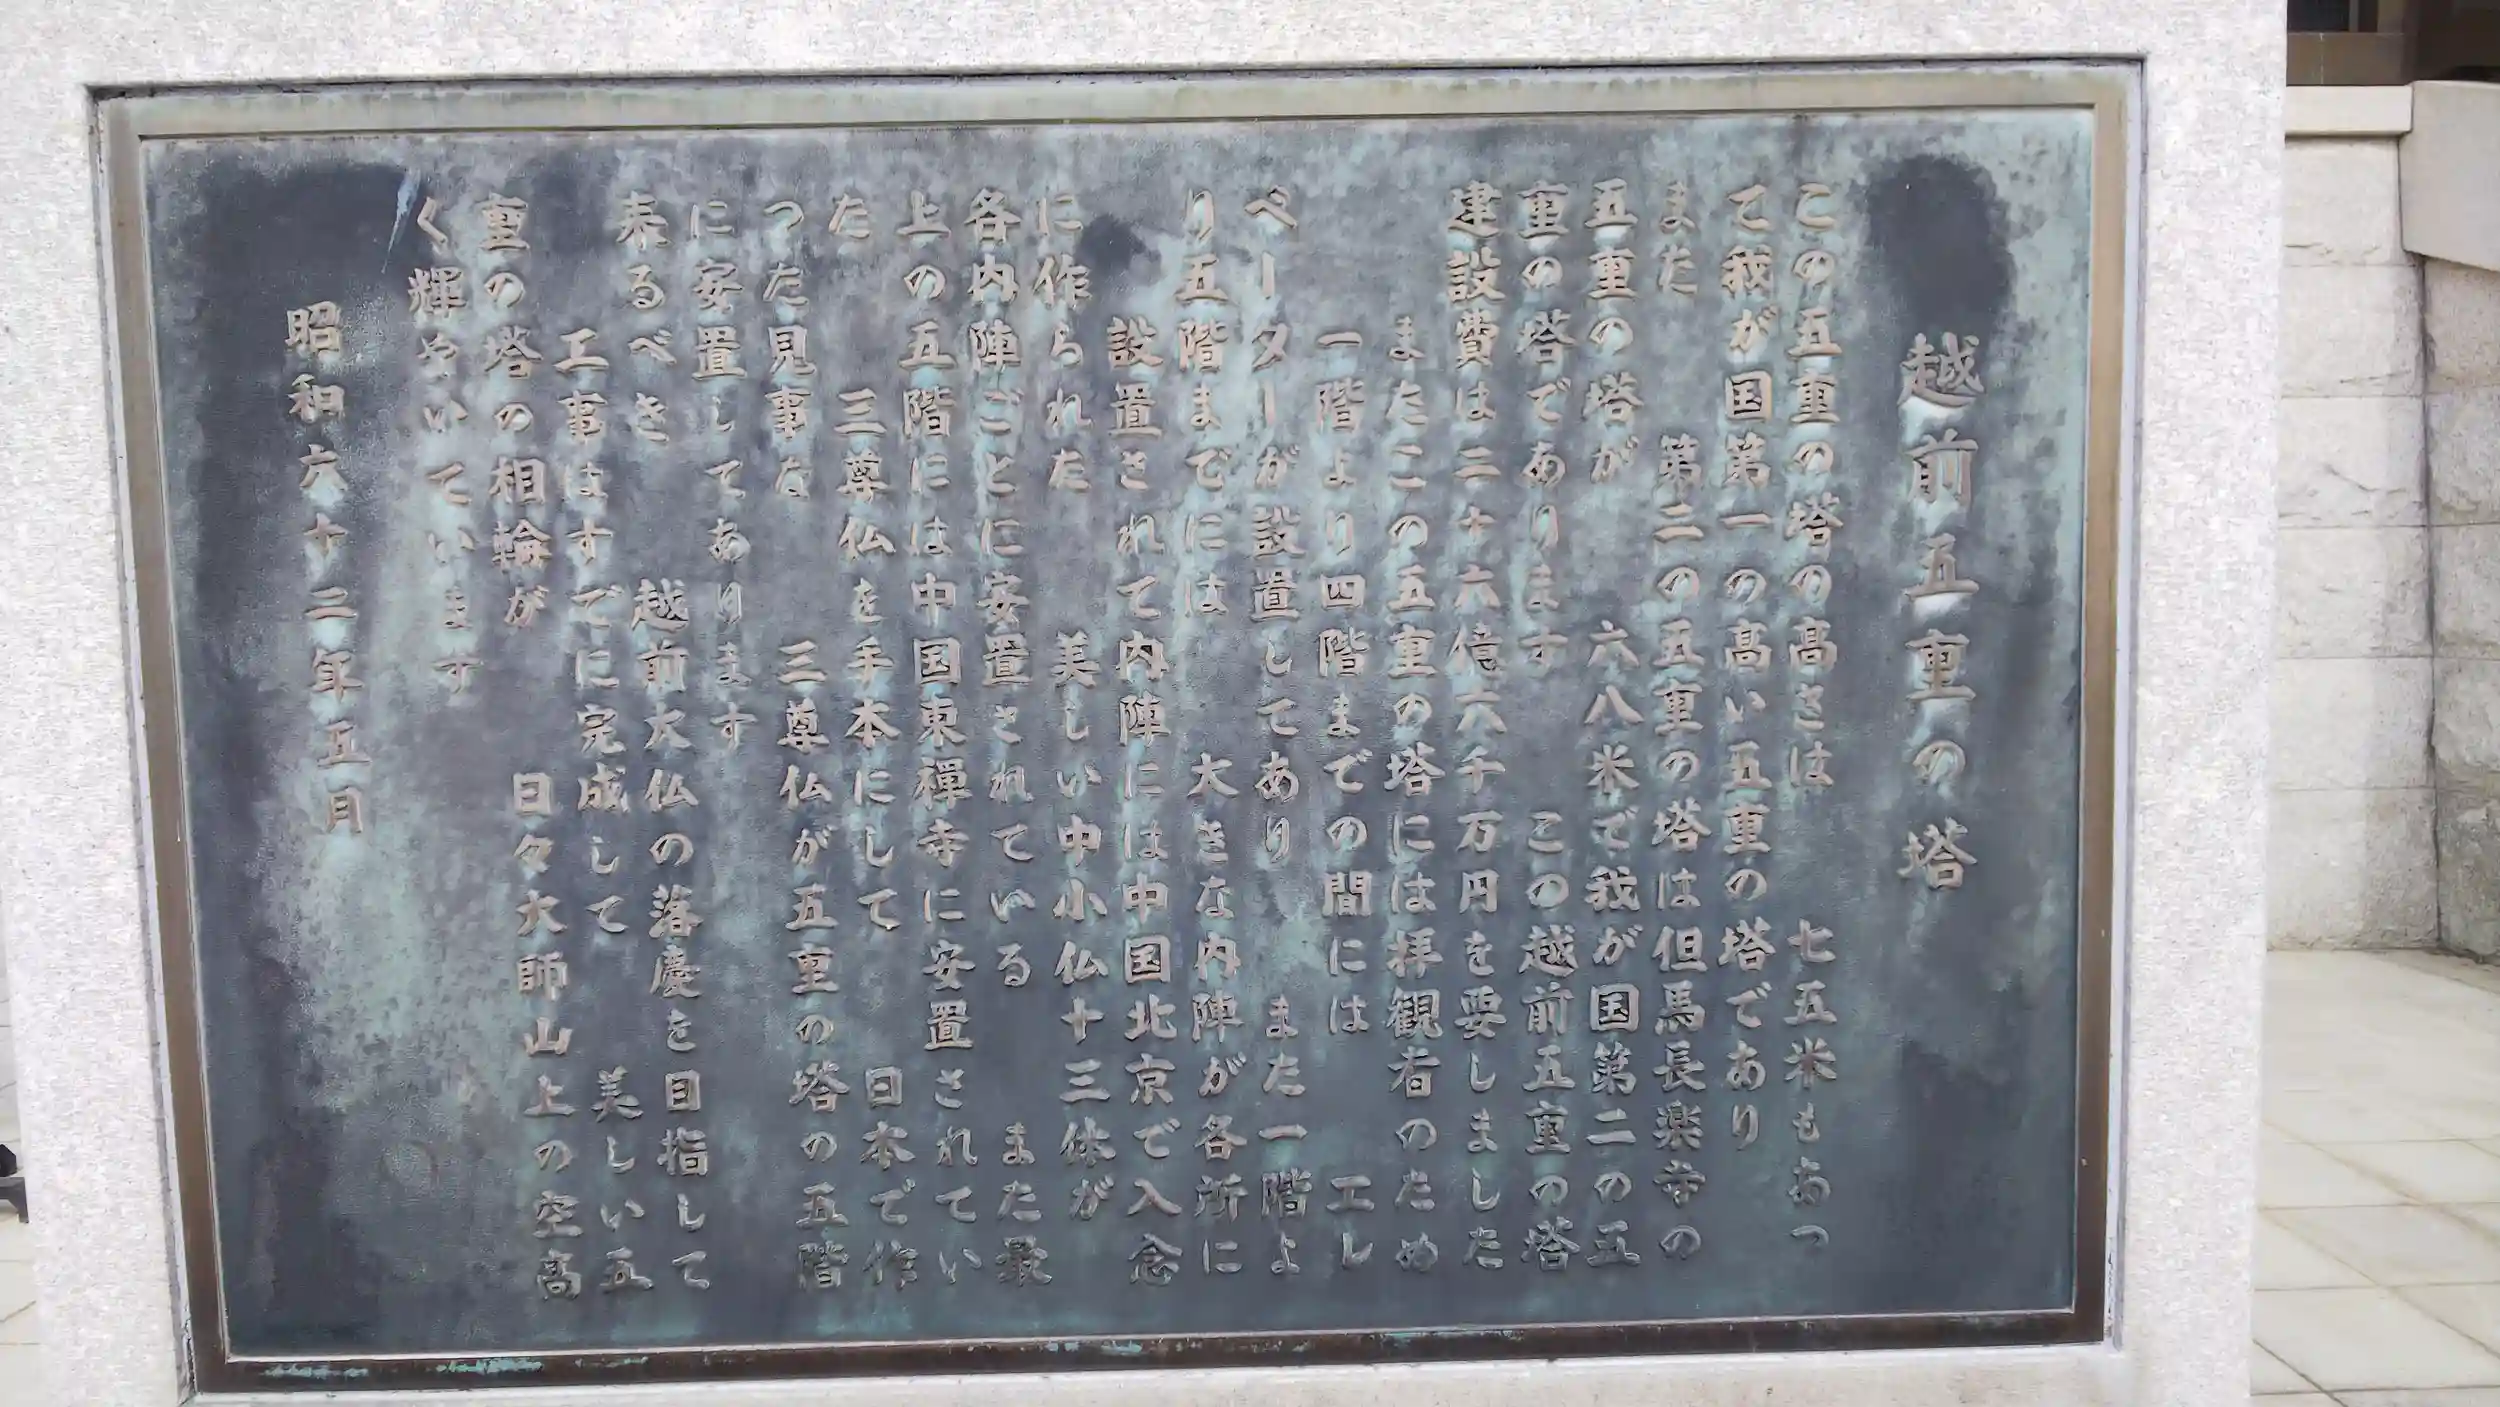 越前五重の塔
この五重の塔の高さは　七五米もあつ
て我が国第一の高い五重の塔であり
また　第二の五重の塔は但馬長楽寺の
五重の塔が　六八米で我が国第二の五
重の塔であります　この越前五重の塔
建設費は二十六億六千万円を要しました
またこの五重の塔には拝観者のため
一階より四階までの間には　エレ
ベーターが設置してあり　また一階よ
り五階までには　大きな内陣が各所に
設置されて内陣には中国北京で入念
に作られた　美しい中小仏十三体が
各内陣ごとに安置されている　また最
上の五階には中国東禅寺に安置されてい
た　三尊仏を手本にして　日本で作
つた見事な　三尊仏が五重の塔の五階
に安置してあります
来るべき　越前大仏の落慶を目指して
工事はすでに完成して　美しい五
重の塔の相輪が　日々大師山上の空高
く輝やいています
昭和六十二年五月